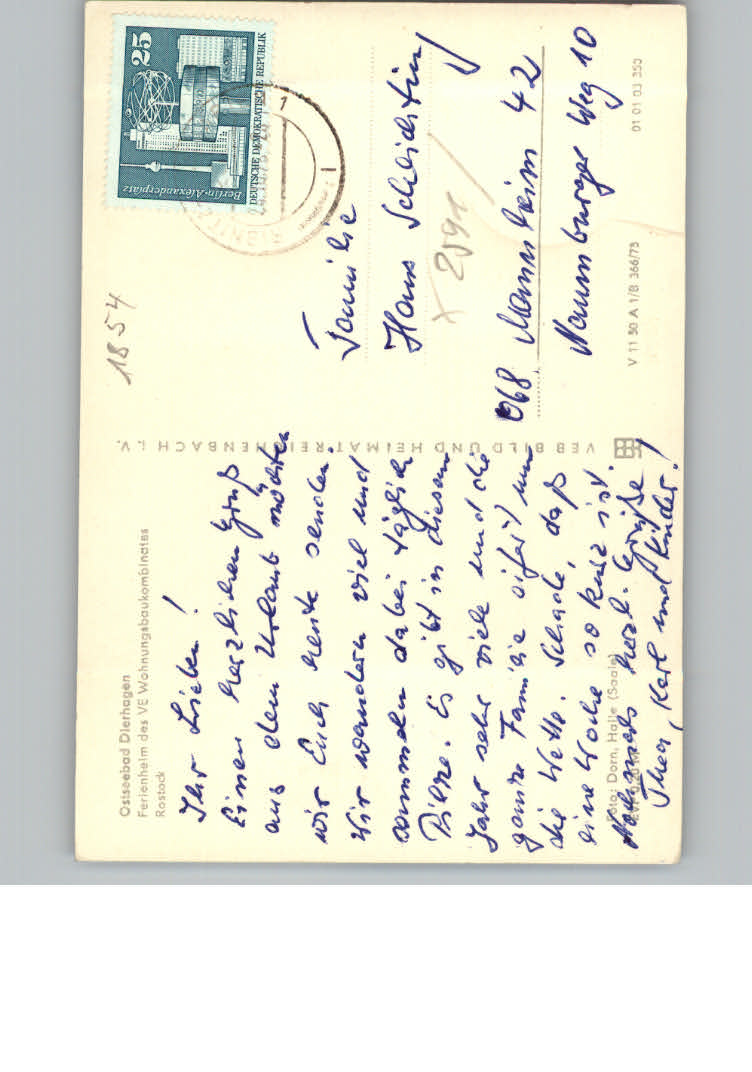 Ostseebad Dierhagen
Ferienheim des VE Wohnungsbaukombinates
Rostock
Ihr Lieben!
Einen herzlichen Gruß
aus dem Urlaub möchten
wir Euch heute senden.
Wir wandern viel und
sammeln dabei täglich
Pilze. Es gibt in diesem
Jahr sehr viele und die
ganze Familie eifert um
die Wette. Schade, daß
eine Woche so kurz ist.
Nochmals herzl. Grüße
Theo, Karl und Kinder!
Foto: Dorn, Halle (Saale)
VEB BILD UND HEIMAT REICHENBACH I. V.
1854
25
Berlin-Alexanderplatz
DEUTSCHE DEMOKRATISCHE REPUBLIK
1
Familie
Hans Schlichting
X 2591
068 Mannheim 42
Naumburger Weg 10
V 11 50 A 1/B 366/75
01 01 03 350